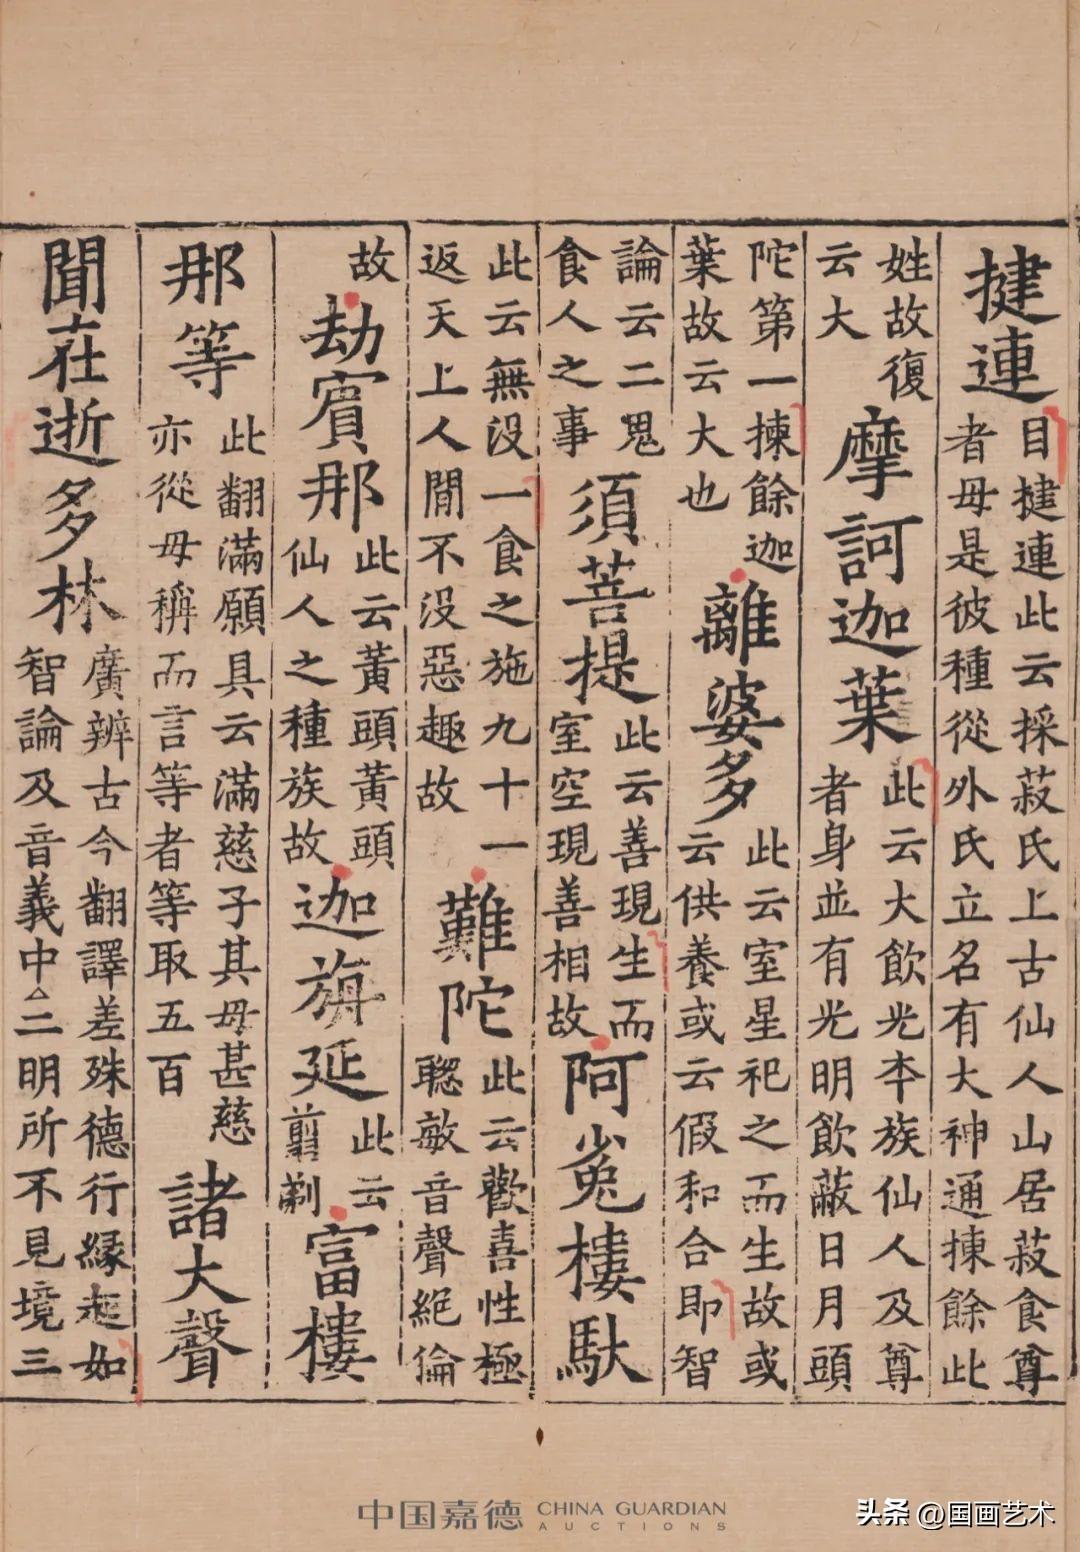 揵連
目揵連此云採菽氏上古仙人山居菽食尊
者母是彼種從外氏立名有大神通揀餘此
姓故復
云大
摩訶迦葉
此云大飲光夲族仙人及尊
者身並有光明飲蔽日月頭
陀第一揀餘迦
葉故云大也
離婆多
此云室星祀之而生故或
云供養或云假和合即智
論云二鬼
食人之事
須菩提
此云善現生而
室空現善相故
阿㝹樓馱
此云無没一食之施九十一
返天上人間不没惡趣故
難陀
此云歡喜性極
聰敏音聲絕倫
故
劫賓那
此云黃頭黃頭
仙人之種族故
迦旃延
此云
剪剃
富樓
那等
此翻滿願具云滿慈子其母甚慈
亦從母稱而言等者等取五百
諸大聲
聞在逝多林
廣辨古今翻譯差殊德行緣起如
智論及音義中二明所不見境三
中国嘉德 CHINA GUARDIAN
AUCTIONS
头条 @国画艺术